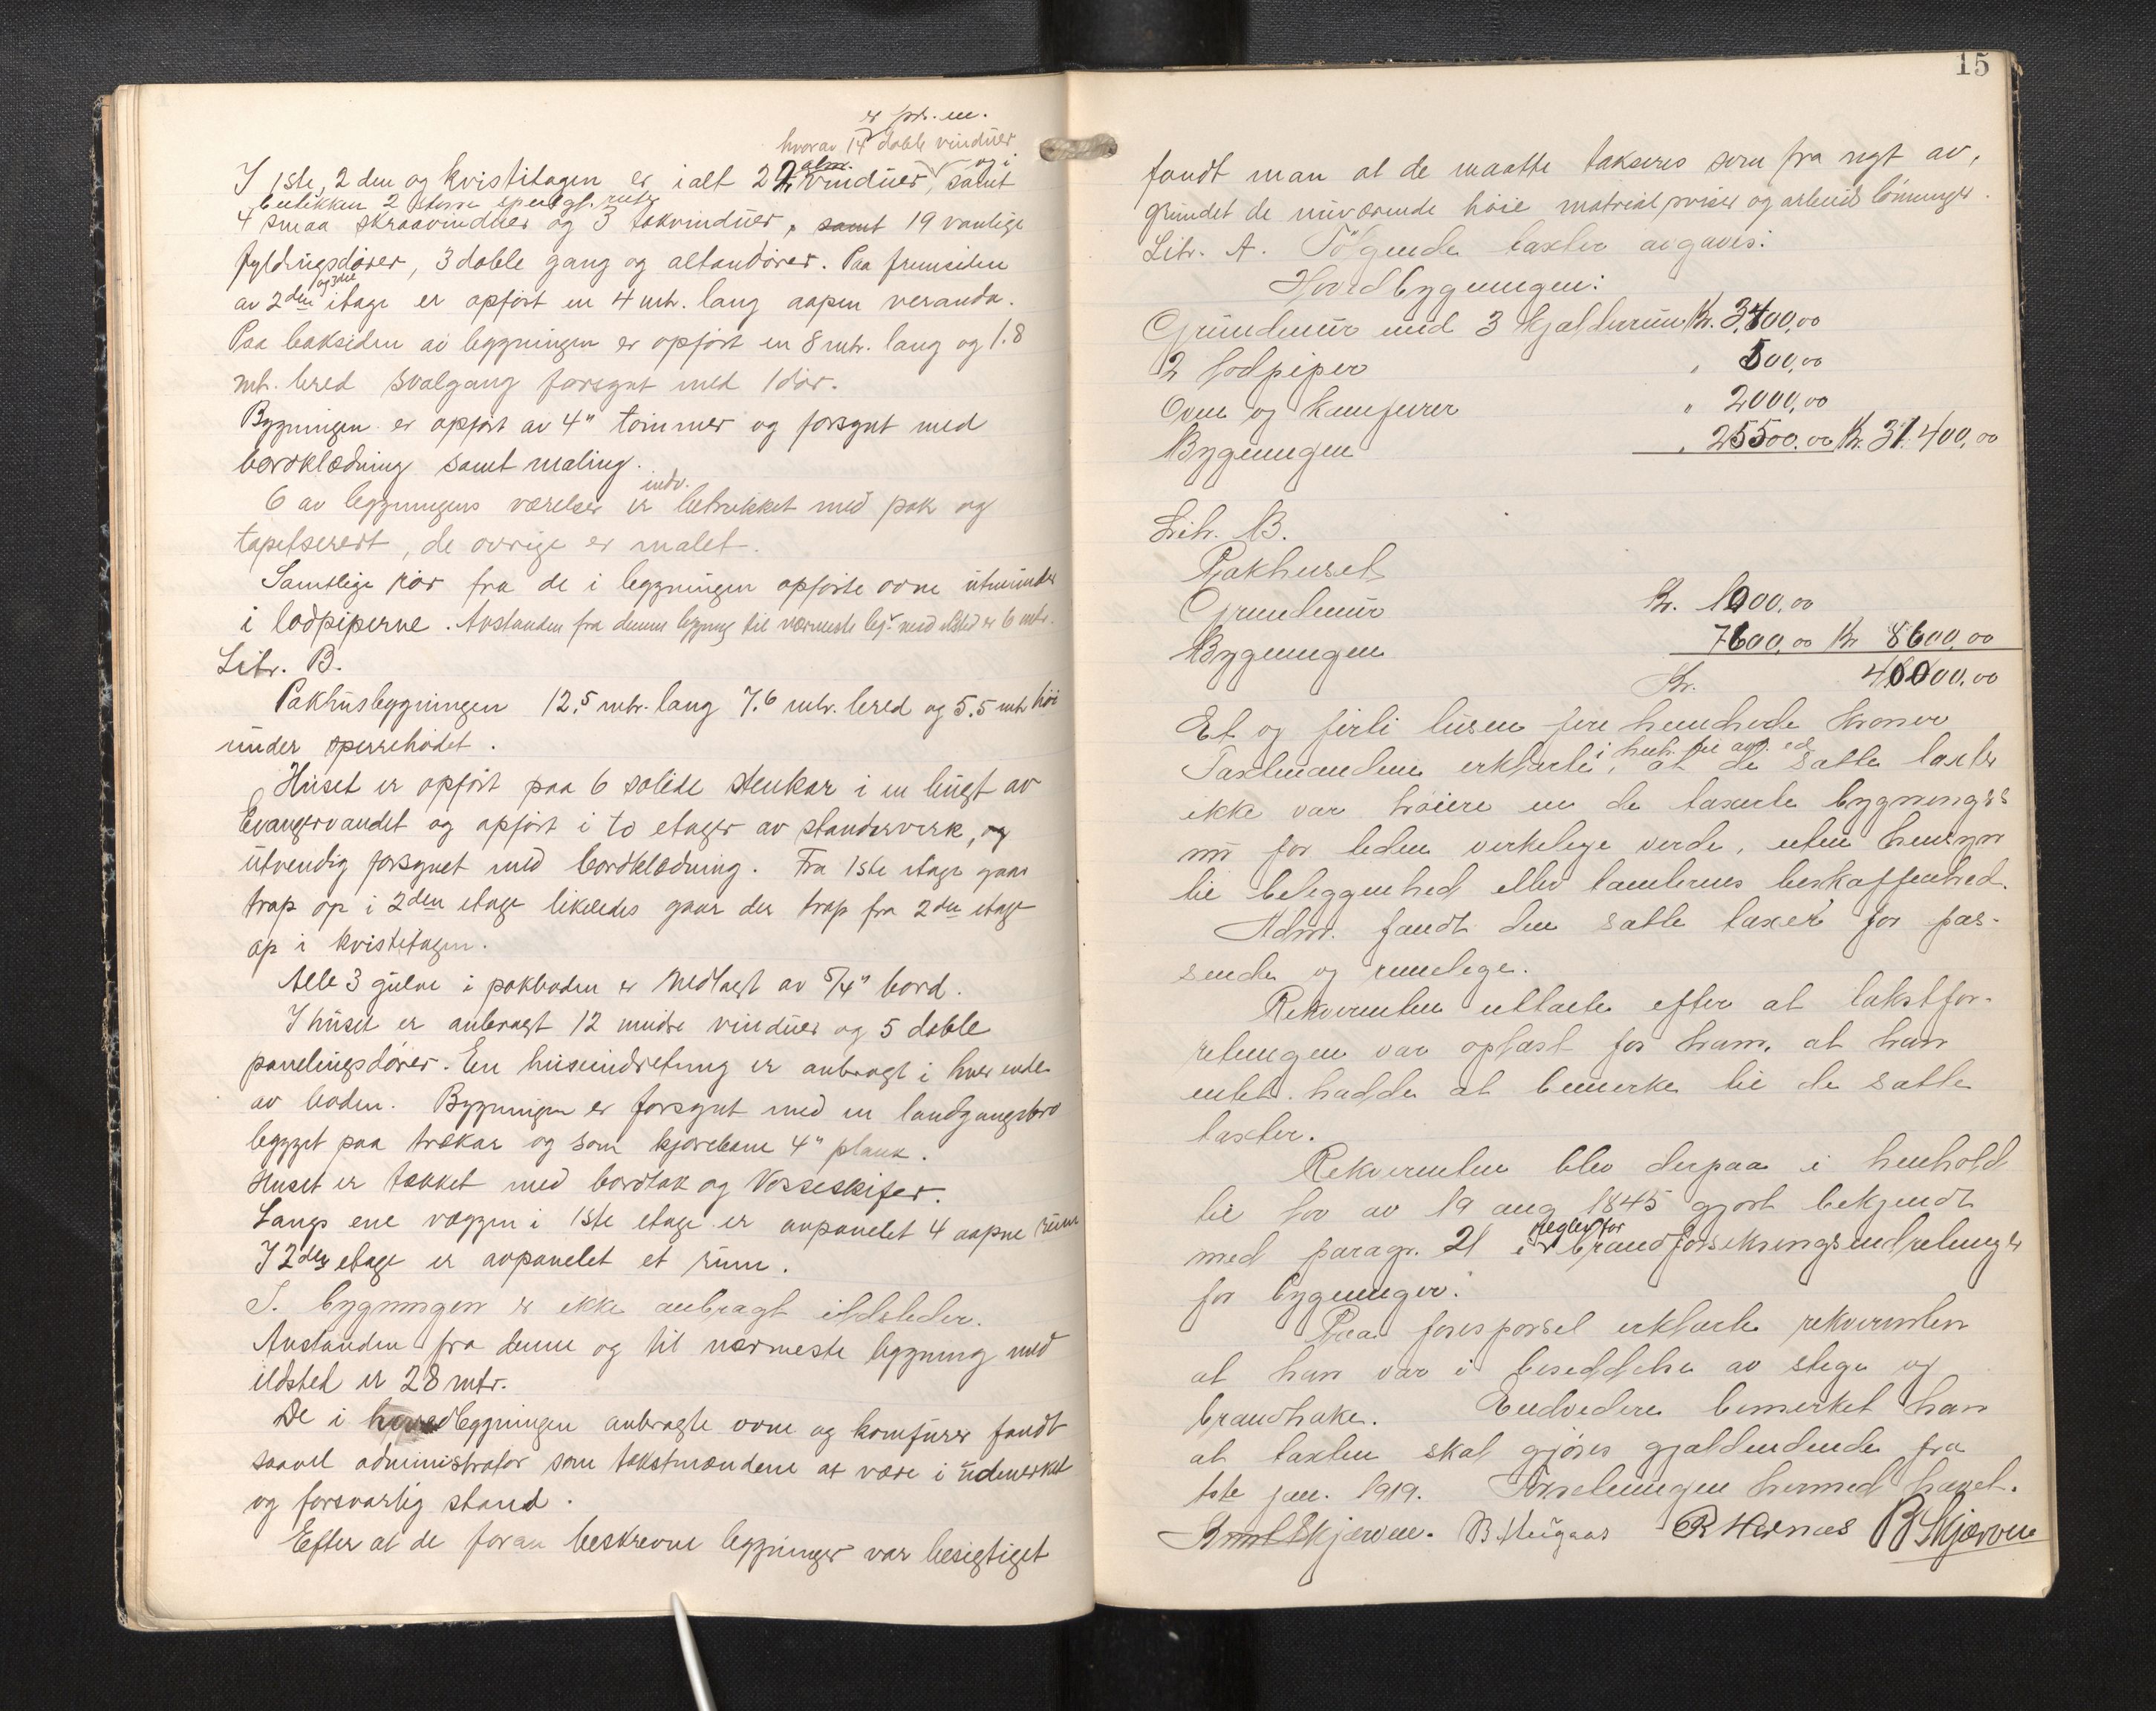 er pr. m.
hvorav 14 doble vinduer
I 1ste, 2den og kvistetagen er ialt 22 alm. vinduer, samt og i
butikken 2 store speilgl. ruter
4 smaa skraavinduer og 3 takvinduer, samt 19 vanlige
fyldingsdører, 3 doble gang og altandører. Paa fremsiden
av 2den og 3die etage er opført en 4 mtr. lang aapen veranda.
Paa baksiden av bygningen er opført en 8 mtr. lang og 1.8
mtr. bred svalgang forsynt med 1 dør.
Bygningen er opført av 4" tømmer og forsynt med
bordklædning samt maling.
6 av bygningens værelser er indv. betrukket med pap og
tapetserert, de øvrige er malet.
Samtlige rør fra de i bygningen opførte ovne utmunder
i lodpiperne. Avstanden fra denne bygning til nærmeste byg. med ildsted er 6 mtr.
Litr. B.
Pakhusbygningen 12.5 mtr. lang 7.6 mtr. bred og 5.5 mtr høi
under sperrehodet.
Huset er opført paa 6 solide stenkar i en bugt av
Evangervandet og opført i to etager av standerverk, og
utvendig forsynet med bordklædning. Fra 1ste etage gaar
trap op i 2den etage likeledes gaar der trap fra 2den etage
op i kvistetagen.
Alle 3 gulve i pakboden er nedlagt av 5/4" bord.
I huset er anbragt 12 mindre vinduer og 5 doble
panelingsdører. En heiseindretning er anbragt i hver ende
av boden. Bygningen er forsynt med en landgangsbro
bygget paa trækar og som kjørebane 4" plank.
Huset er tækket med bordtak og Vosseskifer.
Langs ene væggen i 1ste etage er avpanelet 4 aapne rum
I 2den etage er avpanelet et rum.
I. bygningen er ikke anbragt ildsteder.
Avstanden fra denne og til nærmeste bygning med
ildsted er 28 mtr.
De i hovedbygningen anbragte ovne og komfurer fandt
saavel administrator som takstmændene at være i udmerket
og forsvarlig stand.
Efter at de foran beskrevne bygninger var besigtiget
15
fandt man at de maatte takseres som fra nyt av,
grundet de nuværende høie matrialpriser og arbeidslønninger.
Litr. A. Følgende taxter avgaves:
Hovedbygningen:
Grundmur med 3 kjælderrum Kr. 3,400,00
2 lodpiper " 500,00
Ovne og komfurer " 2000,00
Bygningen " 25500.00 Kr. 31.400,00
Litr. B.
Pakhuset
Grundmur Kr. 1000,00
Bygningen 7600,00 Kr 8600,00
Kr. 40000,00
Et og førti tusen fire hundrede kroner
Taxtmændene erklærte, i henh. til avl. ed at de satte taxter
ikke var høiere en de taxerte bygninger
nu for tiden virkelige verde, uten hensyn
til beliggenhed eller tomternes beskaffenhed.
Adm. fandt den satte taxer for pas-
sende og rimelige.
Rekvirenten uttalte efter at takstfor-
retningen var oplæst for ham, at han
intet hadde at bemerke til de satte
taxter.
Rekvirenten blev derpaa i henhold
til lov av 19 aug 1845 gjort bekjendt
med paragr. 21 i Regler for brandforsikringsindretninger
for bygninger.
Paa forespørsel erklærte rekvirenten
at han var i besiddelse av stige og
brandhake. Endvidere bemerket han
at taxten skal gjøres gjældendende fra
1ste jan. 1919. Forretningen hermed hævet.
Skjerven. R Hernæs B Skjerven